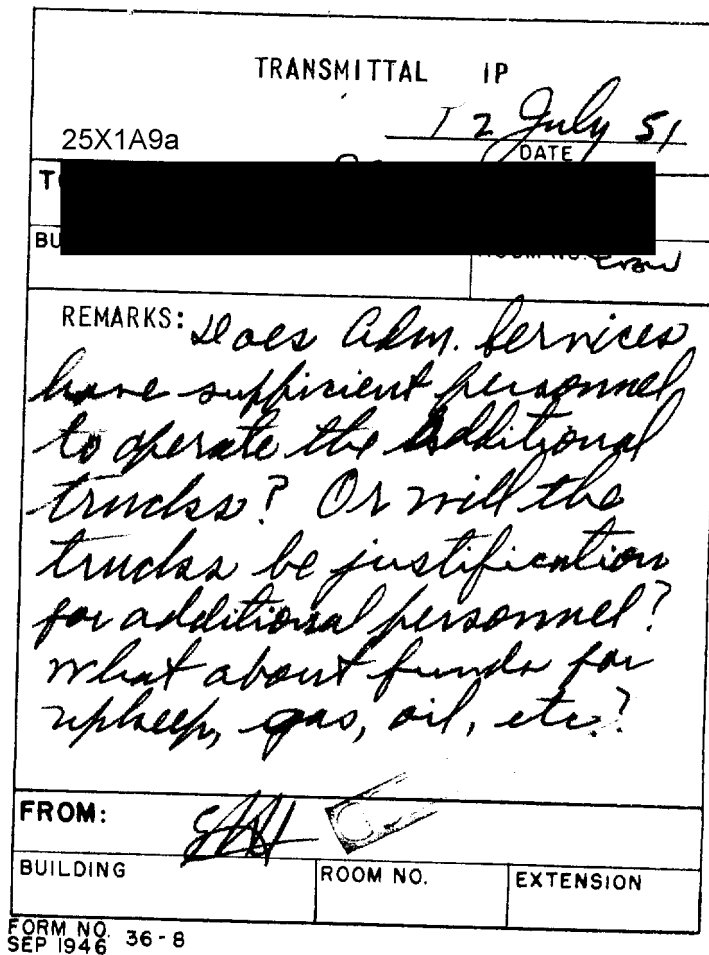 TRANSMITTAL IP
12 July 51
25X1A9a
DATE
T
BU
ROOM NO.
REMARKS: Does Adm. Services
have sufficient personnel
to operate the additional
trucks? Or will the
trucks be justification
for additional personnel?
What about funds for
upkeep, gas, oil, etc.?
FROM:
BUILDING ROOM NO. EXTENSION
FORM NO. 36-8
SEP 1946